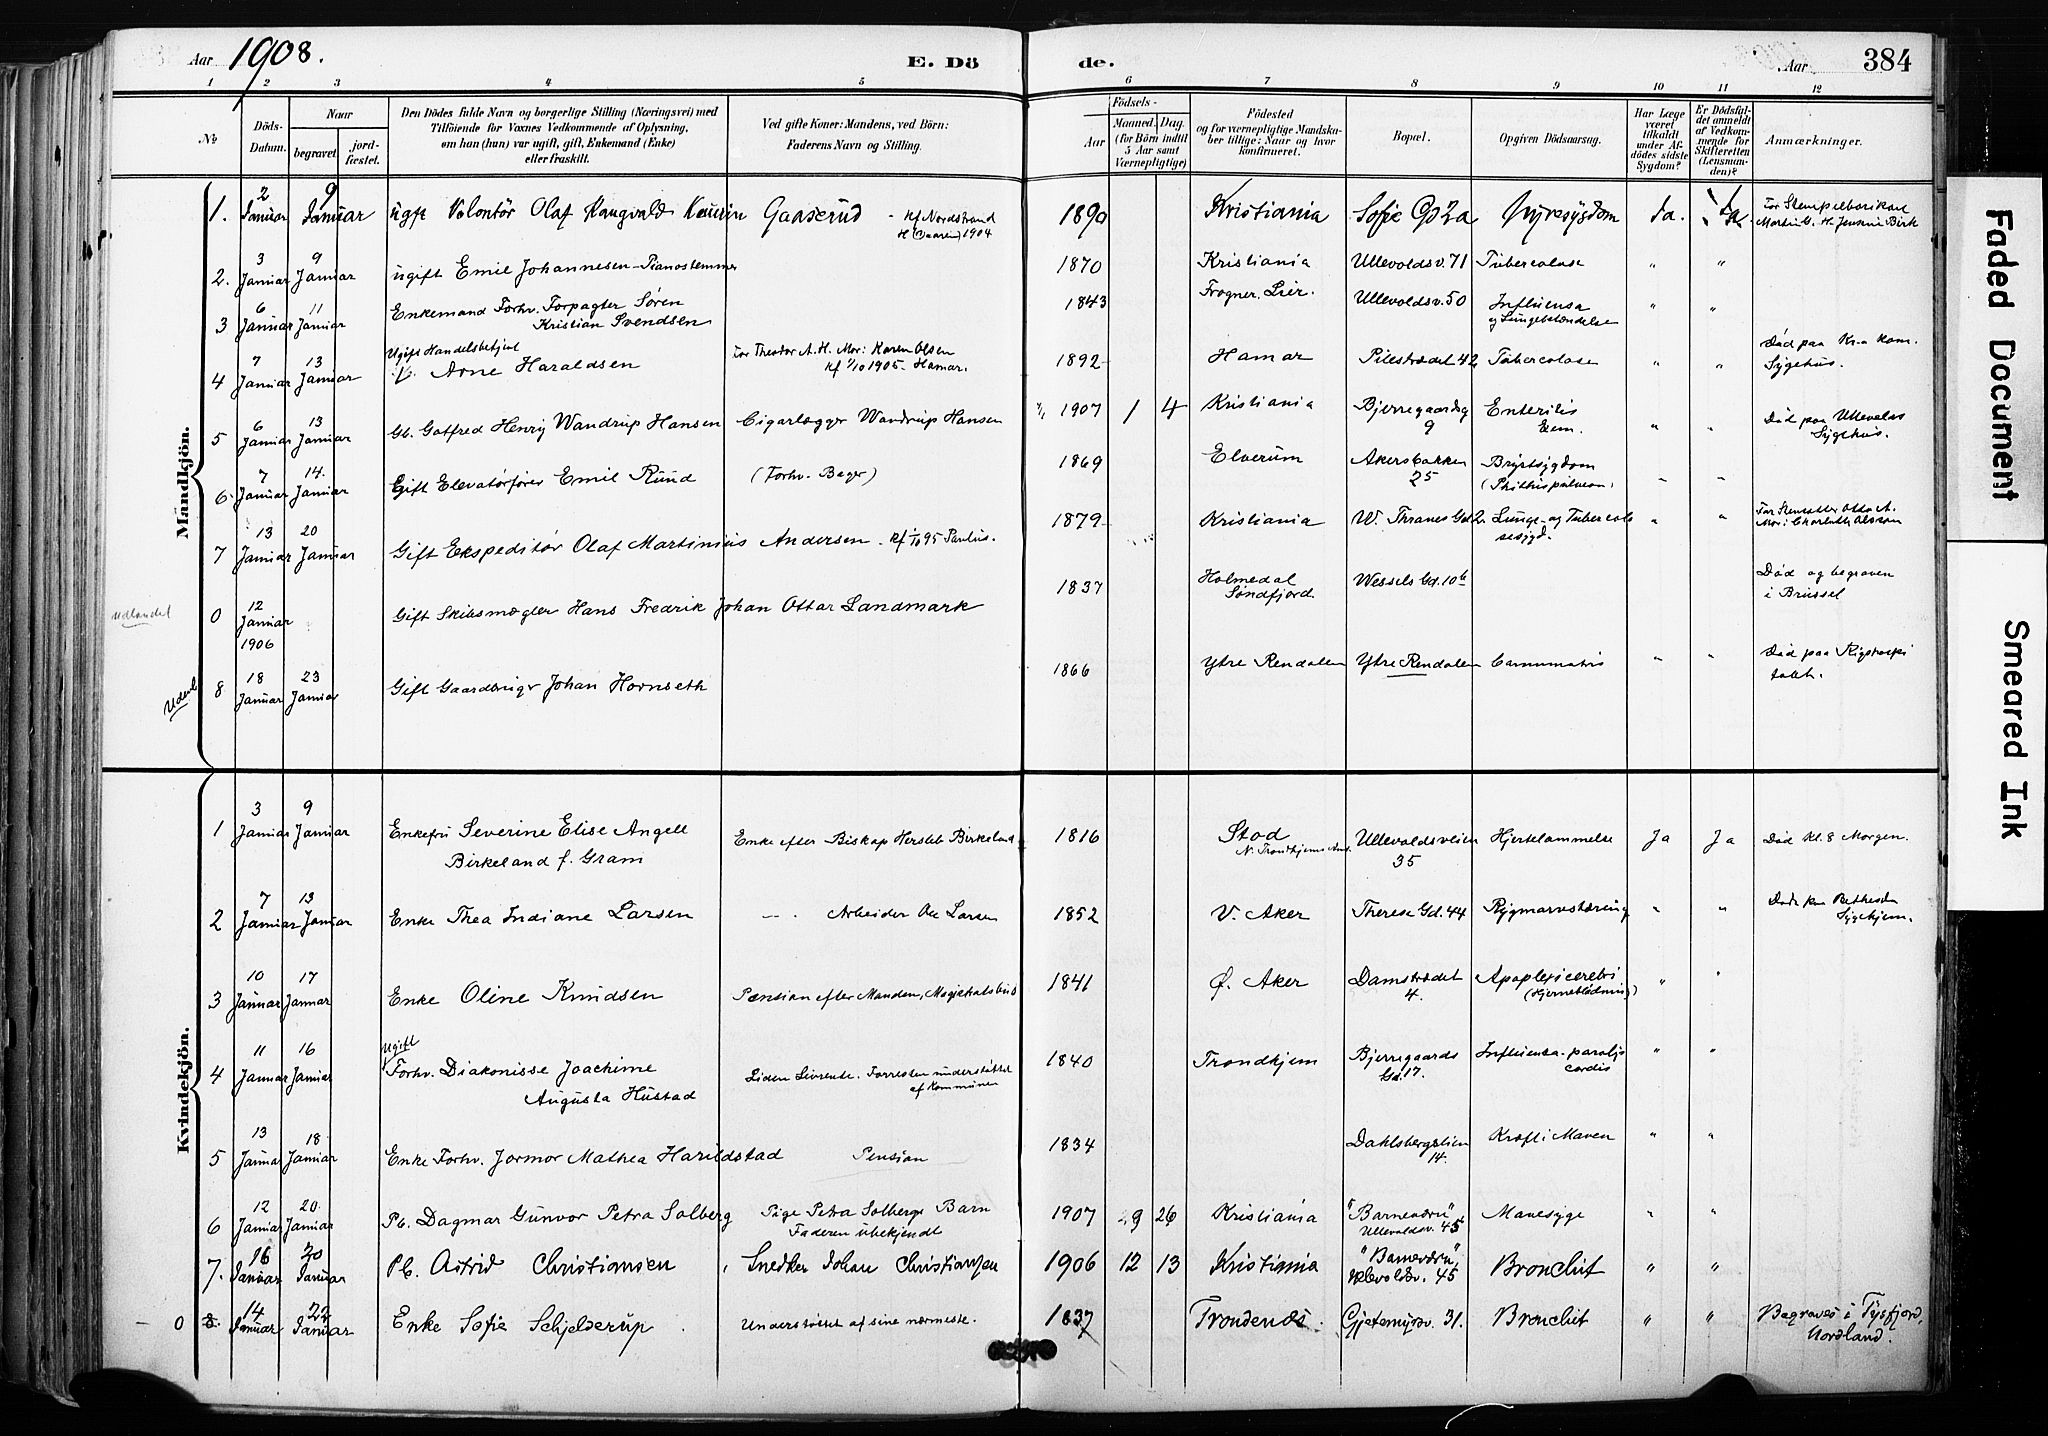 Aar 1908.
E. Dö
de.
Aar
384
1 2 3 4 5 6 7 8 9 10 11 12
No
Döds-Datum.
Naar
begravet.
jord-fæstet.
Den Dödes fulde Navn og borgerlige Stilling (Næringsvei) med
Tilföiende for Voxnes Vedkommende af Oplysning,
om han (hun) var ugift, gift, Enkemand (Enke)
eller fraskilt.
Ved gifte Koner: Mandens, ved Börn:
Faderens Navn og Stilling.
Födsels-
Aar
Maaned. Dag.
(for Börn indtil
5 Aar samt
Værnepligtige)
Födested
og for værnepligtige Mandska-
ber tillige: Naar og hvor
konfirmeret.
Bopæl.
Opgiven Dödsaarsag.
Har Læge
været
tilkaldt
under Af-
dödes sidste
Sygdom?
Er Dödsfal-
det anmeldt
af Vedkom-
mende for
Skifteretten
(Lensman-
den)?
Anmærkninger.
Mandkjön.
1. 2 Januar 9 Januar ugift Volontör Olaf Haugvald Gaaserud Kf. Nordstrand 1904 1890 Kristiania Sofie Nyresygdom Ja. Ja.
2. 3 Januar 9 Januar ugift Emil Johannesen - Pianostemmer 1870 Kristiania Ullevoldsv. 71 Tuberculose " "
3 6 Januar 11 Januar Enkemand Forhv. Forpagter Søren
Kristian Svendsen 1843 Frogner. Lier. Ullevoldsv. 50 Influensa
og Lungebetændelse " "
4 7 Januar 13 Januar Ugift Handelsbetjent
Arne Haraldsen Far Theodor A. H. Mor: Karen Olsen
Kf 1/10 1905 - Hamar. 1892 Hamar Pilestrædet 42 Tuberculose " " Død paa Kr.a kom.
Sygehus.
5 6 Januar 13 Januar Gb. Gotfred Henry Wandrup Hansen Cigarlægger Wandrup Hansen 1907 1 4 Kristiania Bjerregaardsg
9 Enteritis " " Død paa Ullevolds
Sygehus.
6. 7 Januar 14. Januar Gift Elevatørfører Emil Ruud (Forhv. Bager) 1869 Elverum Akersbakken
25 Brystsygdom " "
7 13 Januar 20 Januar Gift Ekspeditør Olaf Martinius Andersen. Kf 1/10 95 Paulus. 1879 Kristiania W. Thranes Gd 2. Lunge- og Tubercolo
sesygd. " " Mor: Charlotte Olsson
Udlandet 0 12 Januar 1906 Gift Skibsmægler Hans Fredrik Johan Ottar Landmark 1837 Holmedal
Søndfjord. Wessels Gd. 10b Død og begraven
i Brüssel
8 18 Januar 23 Januar Gift Gaardbruger Johan Hornseth 1866 Ytre Rendalen Ytre Rendalen " " Død paa Rigshospi
talet.
Kvindekjön.
1 3 Januar 9 Januar Enkefru Severine Elise Angell
Birkeland f. Gram Enke efter Biskop Hersleb Birkeland 1816 Stod
N. Trondhjems Amt. Ullevoldsveien
35 Hjertelammelse Ja Ja Død Kl. 8 Morgen.
2 7 Januar 13 Januar Enke Thea Indiane Larsen - - Arbeider Ole Larsen 1852 V. Aker Therese Gd. 44 Rygmarvstæring " " Død paa Bethesda
Sygehjem.
3 10 Januar 17 Januar Enke Oline Knudsen Pension efter Manden, Magistratsbud 1841 Ø. Aker Damstrædet
4. Apoplexi cerebri
(Hjerneblødning) " "
4 11 Januar 16 Januar Ugift
Forhv. Diakonisse Joachime
Augusta Hustad Liden Livrente. Forresten understøttet
af Kommunen 1840 Trondhjem Bjerregaards
Gd. 17. Influensa - paralys
cordis " "
5 13 Januar 18 Januar Enke Forhv. Jormor Mathea Harildstad Pension 1834 Dahlsbergstien
14. Kræft i Maven " "
6 12 Januar 20. Januar Pb. Dagmar Gunvor Petra Solberg Pige Petra Solbergs Barn
Faderen ubekjendt 1907 9 26 Kristiania "Barnehem"
Ullevoldsv. 45 Mavesyge " "
7. 16 Januar 20 Januar Pb. Astrid Christiansen Snedker Johan Christiansen 1906 12 13 Kristiania Ullevoldsv. 45 Bronchit " "
0 8. 14 Januar 22 Januar Enke Sofie Schjelderup. Understøttet af sine nærmeste. 1837 Trondenes. Gjetemyrsv. 31. Bronchit " " Begraves i Tysfjord,
Nordland.
Faded Document
Smeared Ink